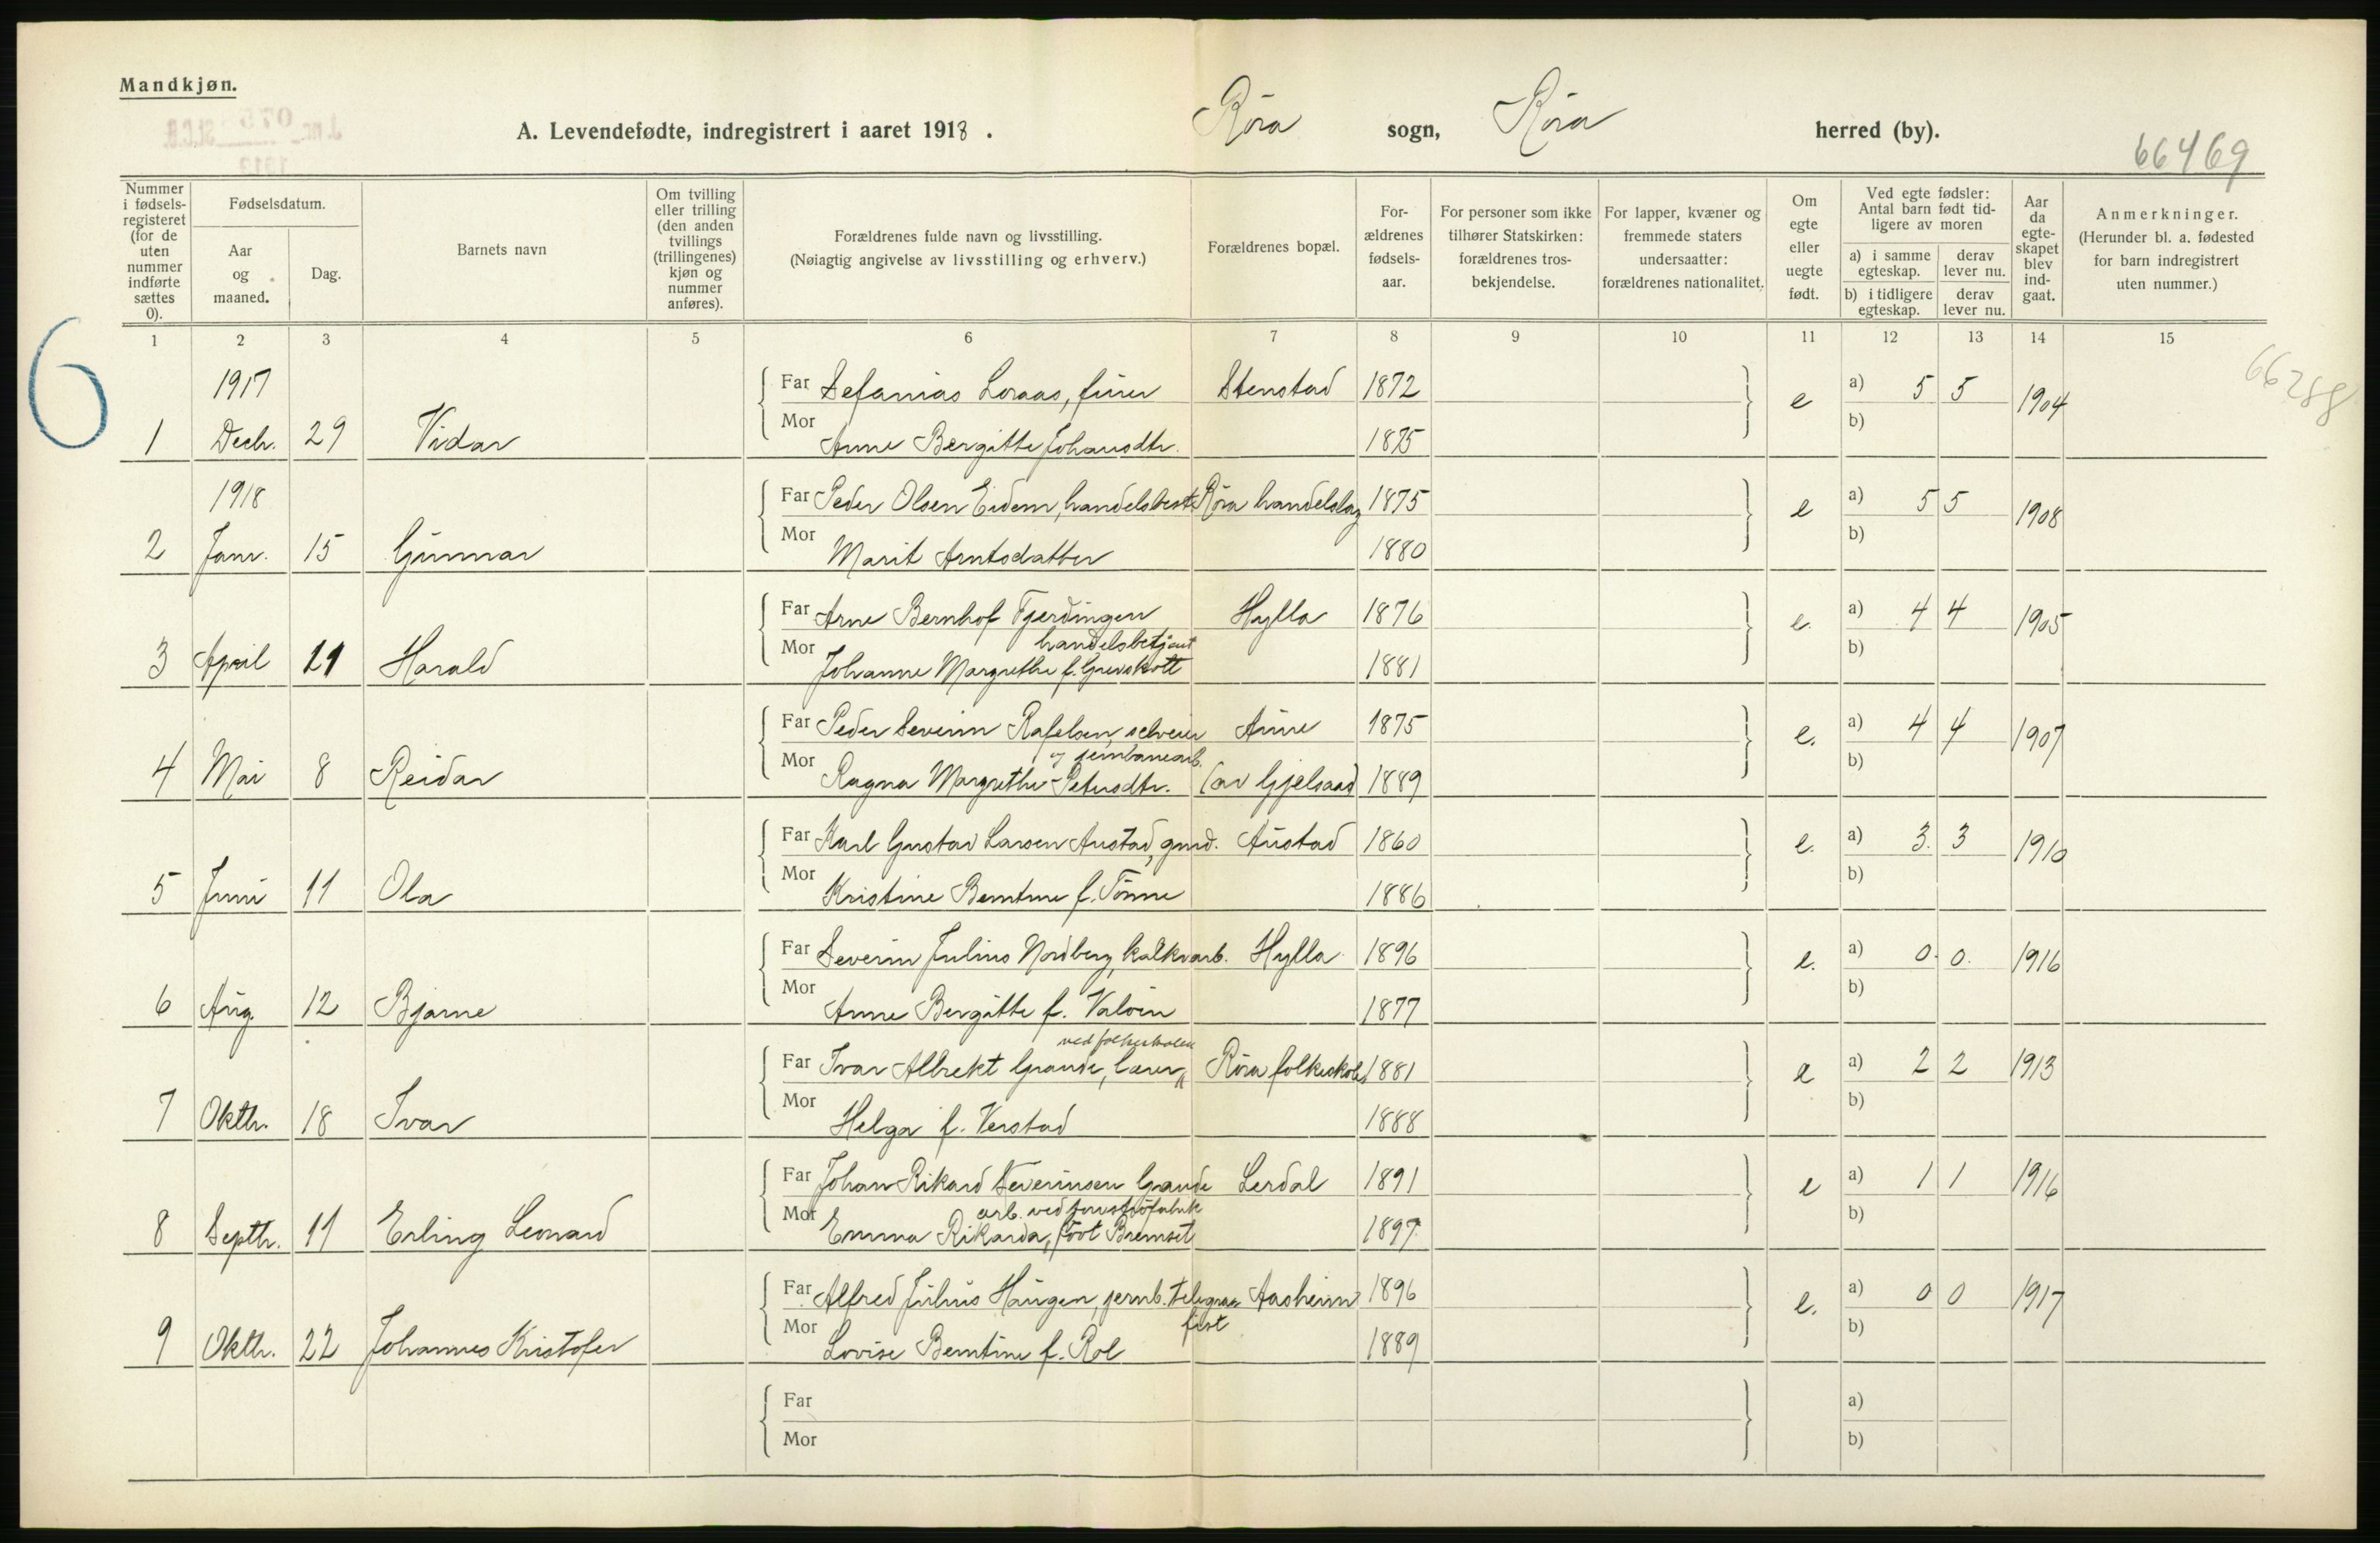 Mandkjøn.
A. Levendefødte, indregistrert i aaret 1918. Røra sogn, Røra herred (by).
66469
Nummer i fødsels-registeret (for de uten nummer indførte sættes 0).
Fødselsdatum.
Aar og maaned.
Dag.
Barnets navn
Om tvilling eller trilling (den anden tvillings (trillingenes) kjøn og nummer anføres).
Forældrenes fulde navn og livsstilling.
(Nøiagtig angivelse av livsstilling og erhverv.)
Forældrenes bopæl.
For-ældrenes fødsels-aar.
For personer som ikke tilhører Statskirken: forældrenes tros-bekjendelse.
For lapper, kvæner og fremmede staters undersaatter: forældrenes nationalitet.
Om egte eller uegte født.
Ved egte fødsler: Antal barn født tid-ligere av moren
a) i samme egteskap.
derav lever nu.
b) i tidligere egteskap.
derav lever nu.
Aar da egte-skapet blev ind-gaat.
Anmerkninger.
(Herunder bl. a. fødested for barn indregistrert uten nummer.)
1 2 3 4 5 6 7 8 9 10 11 12 13 14 15
6
66288
1917
Far Sefanias Loraas, furer Stenstad 1872 e a) 5 5 1904
Mor b)
1 Decbr. 29 Vidar Anne Bergitte Johansdtr. 1875
1918
Far Peder Olsen Eidem, handelsbest. Røra handelslag 1875 e a) 5 5 1908
Mor b)
2 Janr. 15 Gunnar Marit Arntsdatter 1880
Far Arne Bernhof Tjerdingen Hylla 1876 e. a) 4 4 1905
Mor handelsbetjent b)
3 April 21 Harald Johanne Margrethe f. Grevskott 1881
Far Peder Severin Rafelsen, selveier Aune 1875 e. a) 4 4 1907
Mor og jernbanearb. b)
4 Mai 8 Reidar Ragna Margrethe Petersdtr. (av Gjelsaas) 1889
Far Karl Gustav Larsen Austad, gmd. Austad 1860 e. a) 3. 3 1910
Mor b)
5 Juni 11 Ola Kristine Berntine f. Tønne 1886
Far Severin Julius Nordberg, kalkvarb. Hylla 1896 e. a) 0. 0. 1916
Mor b)
6 Aug. 12 Bjarne Anne Bergitte f. Valøen 1877
ved folkeskolen
Far Ivar Albrekt Grande, lærer Røra folkeskole 1881 e a) 2 2 1913
Mor b)
7 Oktbr. 18 Ivar Helga f. Verstad 1888
Far Johan Rikard Severinsen Grande Lerdal 1891 e a) 1 1 1916
Mor arb. ved torvstrøfabrik b)
8 Septbr. 11 Erling Leonard Emma Rikarda, født Bremset 1897
Far Alfred Julius Haugen, jernb. telegrafist Aasheim 1896 e. a) 0 0 1917
Mor b)
9 Oktbr. 22 Johannes Kristofer Lovise Berntine f. Rol 1889
Far a)
Mor b)